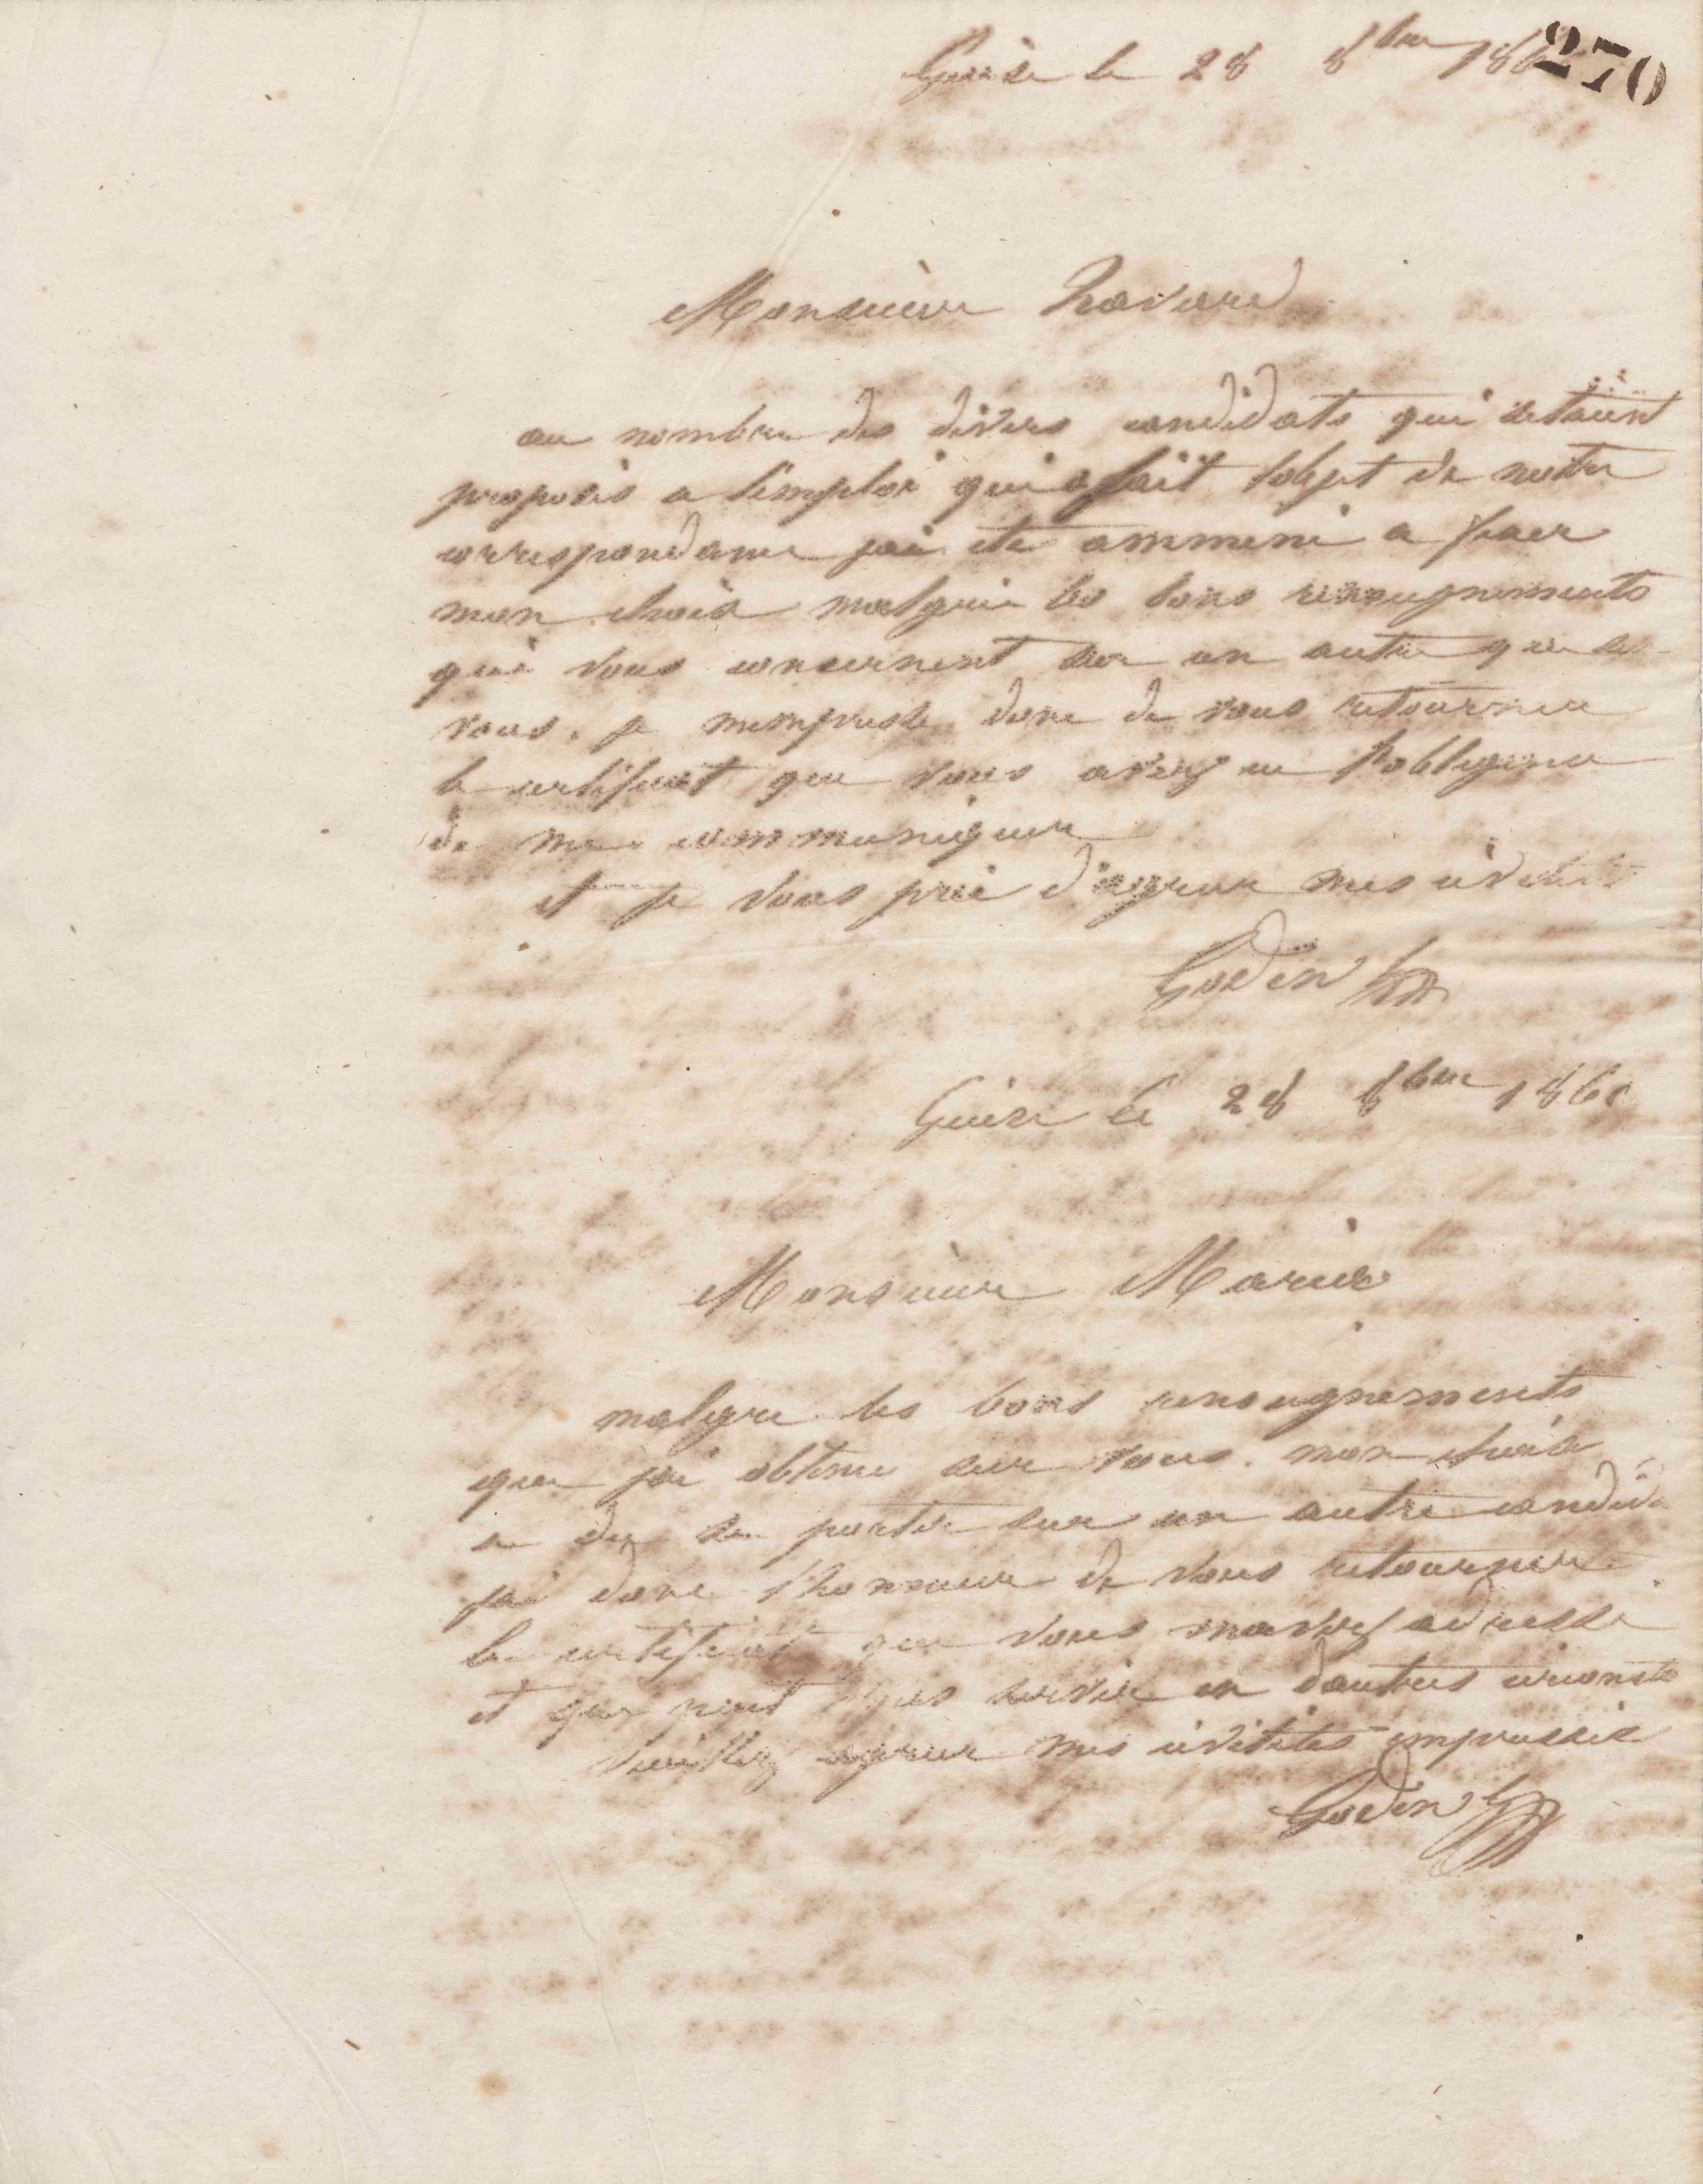 270
Guise le 28 8bre 186
Monsieur Havard
au nombre des divers candidats qui setaient
proposés a lemploi qui a fait lobjet de notre
correspondance jai ete ammené a fixer
mon choix malgré les bons renseignements
qui vous concernent sur un autre que
vous. je mempresse donc de vous retourner
le certificat que vous avez eu lobligence
de me communiquer
et je vous prie d'agreer mes civilités
Godin
Guise le 28 8bre 1860
Monsieur Marié
malgre les bons renseignements
que jai obtenu sur vous. mon choix
a du se porter sur un autre candida
jai donc lhonneur de vous retourner
le certificat que vous mavez adressé
et qui peut vous servir en dautres circonsta
Veuillez agreer mes civilités empressée
Godin